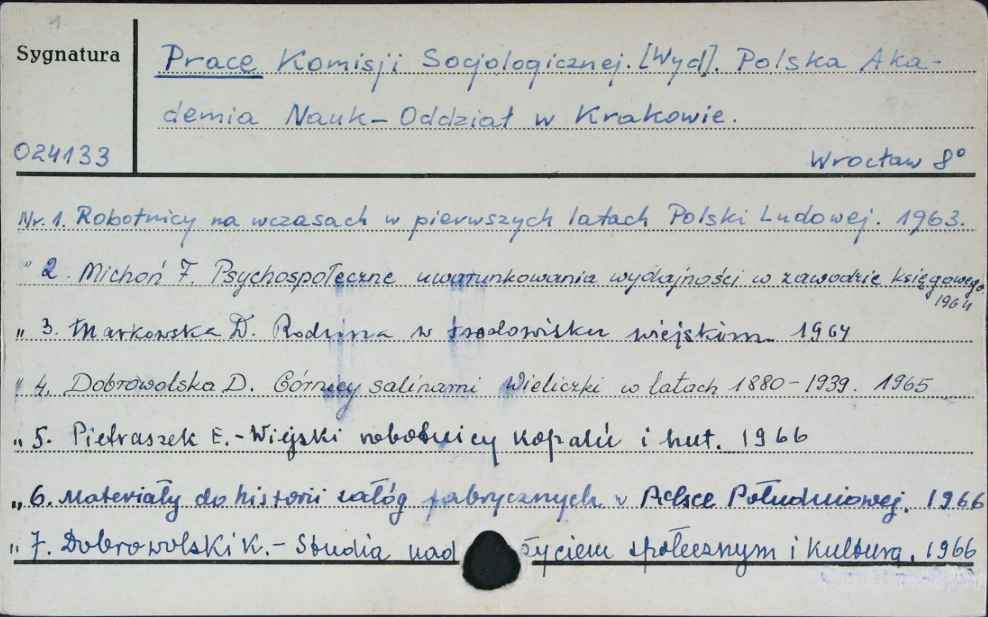 1
Sygnatura
Prace Komisji Socjologicznej. [Wyd]. Polska Aka-
demia Nauk - Oddział w Krakowie.
024133
Wrocław 8°
Nr. 1. Robotnicy na wczasach w pierwszych latach Polski Ludowej. 1963.
" 2. Michoń F. Psychospołeczne uwarunkowania wydajności w zawodzie księgowego.
1964
" 3. Markowska D. Rodzina w środowisku wiejskim 1964
" 4. Dobrowolska D. Górnicy salinarni Wieliczki w latach 1880-1939. 1965
" 5. Pietraszek E. - Wiejski robotnicy kopalń i hut. 1966
" 6. Materiały do historii załóg fabrycznych w Polsce Południowej. 1966
" 7. Dobrowolski K. - Studia nad życiem społecznym i kulturą. 1966